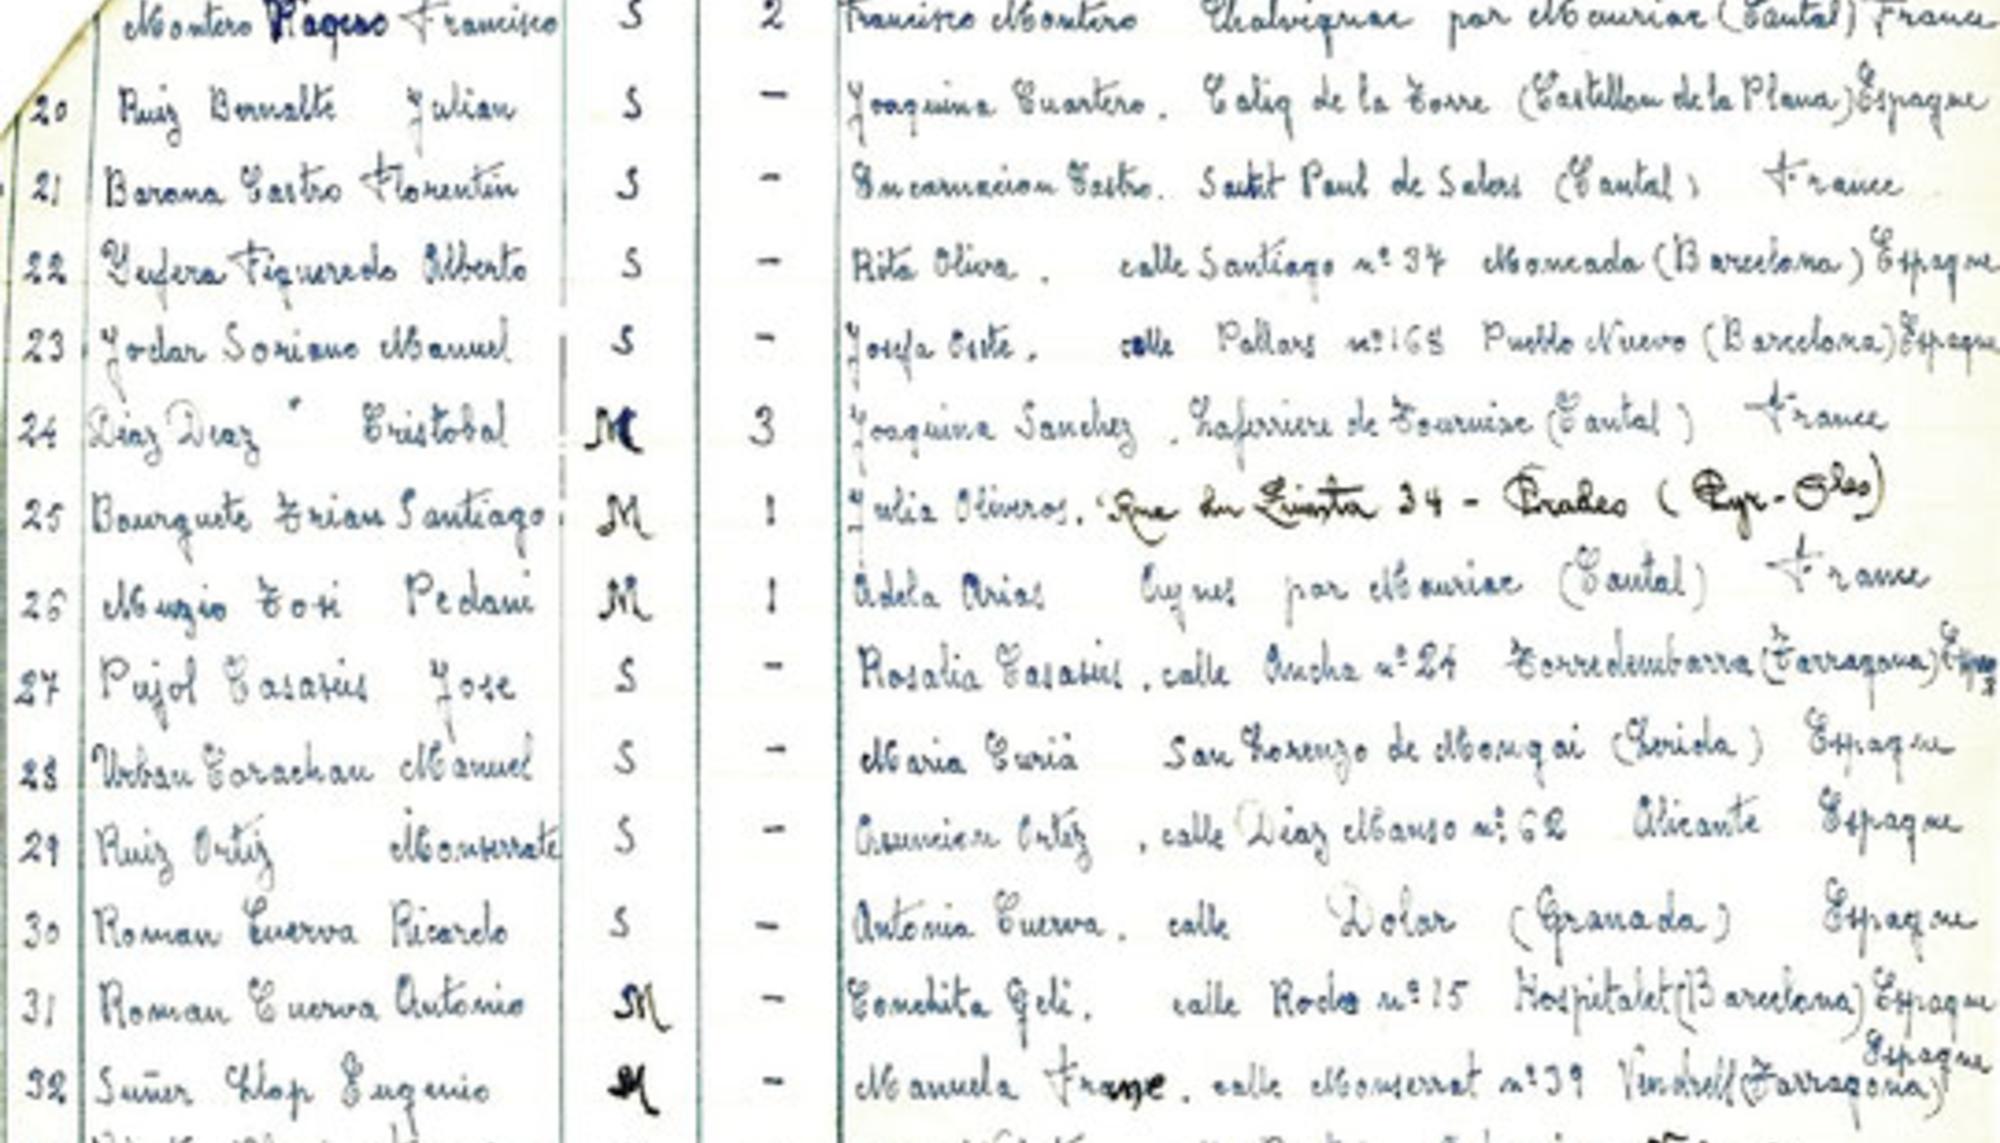 Montero Ragero Francisco S 2 Francisco Montero Chalvignac par Mauriac (Cantal) France
20 Ruiz Bernalte Julian S - Joaquina Cuartero. Calig de la Torre (Castellon de la Plana) Espagne
21 Barona Castro Florentin S - Encarnacion Castro. Saint Paul de Salers (Cantal) France
22 Yeufera Figueredo Alberto S - Rita Oliva. calle Santiago nº 37 Moncada (Barcelona) Espagne
23 Jodar Soriano Manuel S - Josefa Oste. calle Pallars nº 168 Pueblo Nuevo (Barcelona) Espagne
24 Diaz Diaz Cristobal M 3 Joaquina Sanchez. Laferriere de Tournise (Cantal) France
25 Bourguete Trian Santiago. M 1 Julia Oliveros. Rue du 34 - Prades (Pyr-Oles)
26 Muzio Tosi Pedani M 1 Adela Arias Aynes par Mauriac (Cantal) France
27 Pujol Casasus Jose S - Rosalia Casasus. calle Ancha nº 24 Torredembarra (Tarragona)
28 Urban Corachan Manuel S - Maria Curiá San Lorenzo de Mongai (Lerida) Espagne
29 Ruiz Ortiz Monserrate S - Asuncion Ortiz, calle Diaz Manso nº 62 Alicante Espagne
30 Roman Cuerva Ricardo S - Antonia Cuerva. calle Dolar (Granada) Espagne
31 Roman Cuerva Antonio M - Conchita Geli. calle Rodes nº 15 Hospitalet (Barcelona) Espagne
32 Suñer Llop Eugenio M - Manuela Franc. calle Monserrat nº 39 Vendrell (Tarragona) Espagne